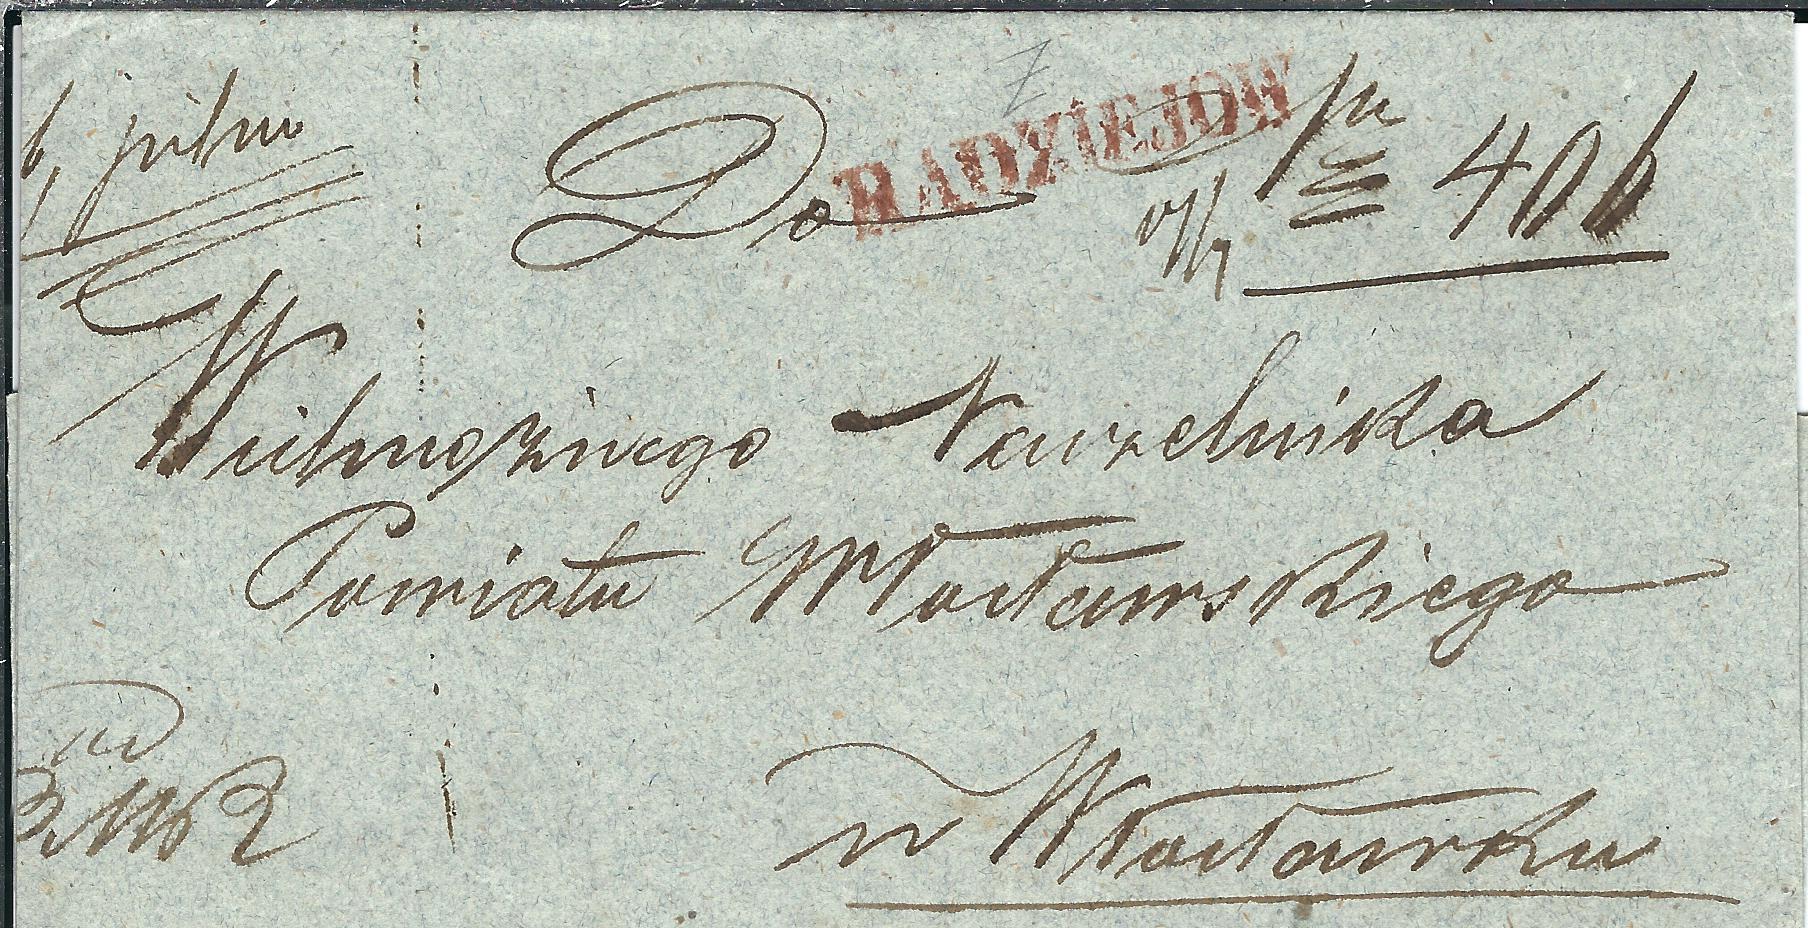 pilno
Do
RADZIEJOW
406
Wielmożnego Naczelnika
Powiatu Włocławskiego
w Włocławku